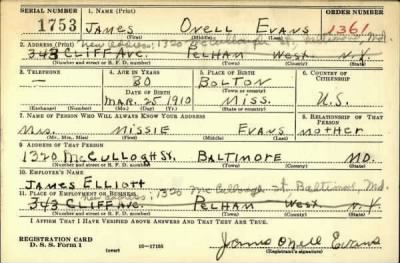 SERIAL NUMBER 1. NAME (Print)
1753 JAMES ONELL EVANS 1361
2. ADDRESS (Print) New address; 1320 McCullough St. Baltimore, Md.
343 CLIFF AVE. PELHAM West N.Y.
(Number and street or R. F. D. number) (Town) (County) (State)
3. TELEPHONE 4. AGE IN YEARS 5. PLACE OF BIRTH 6. COUNTRY OF CITIZENSHIP
— 30 BOLTON
DATE OF BIRTH (Town or county)
MAR. 25 1910 MISS. U.S.
(Exchange) (Number) (Mo.) (Day) (Yr.) (State or country)
7. NAME OF PERSON WHO WILL ALWAYS KNOW YOUR ADDRESS 8. RELATIONSHIP OF THAT PERSON
Mrs. MISSIE EVANS MOTHER
(Mr., Mrs., Miss) (First) (Middle) (Last)
9. ADDRESS OF THAT PERSON
1320 McCULLOGH St. BALTIMORE MD.
(Number and street or R. F. D. number) (Town) (County) (State)
10. EMPLOYER'S NAME
JAMES ELLIOTT
11. PLACE OF EMPLOYMENT OR BUSINESS New address; 1320 McCullough St. Baltimore, Md.
343 CLIFF AVE. PELHAM West N.Y.
(Number and street or R. F. D. number) (Town) (County) (State)
I AFFIRM THAT I HAVE VERIFIED ABOVE ANSWERS AND THAT THEY ARE TRUE.
REGISTRATION CARD
D. S. S. Form 1 16—17105 James Onell Evans